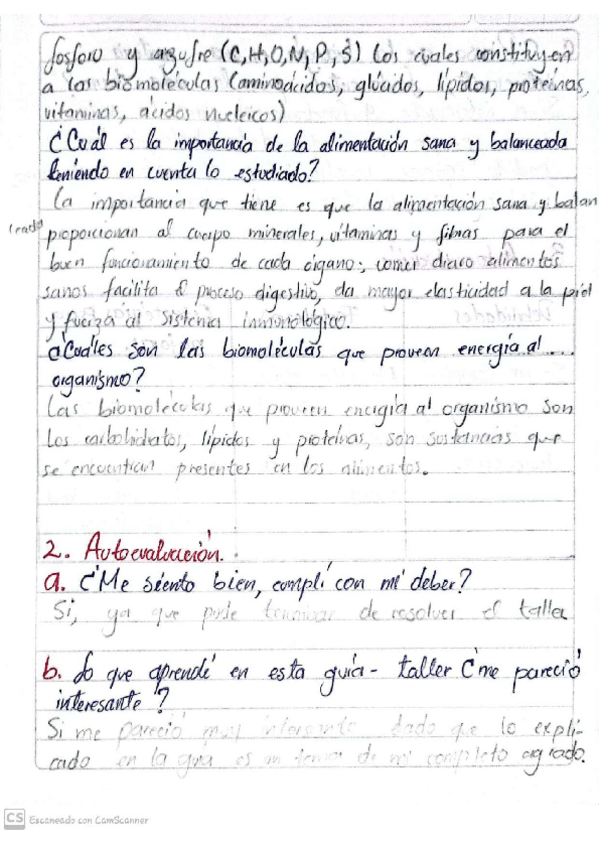 fosforo y azufre (C,H,O,N,P,S) los cuales constituyen
a las biomoléculas (aminoácidos, glúcidos, lípidos, proteínas,
vitaminas, ácidos nucleicos)
¿Cuál es la importancia de la alimentación sana y balanceada
teniendo en cuenta lo estudiado?
La importancia que tiene es que la alimentación sana y balan
ceada proporcionan al cuerpo minerales, vitaminas y fibras para el
buen funcionamiento de cada órgano; comer diario alimentos
sanos facilita el proceso digestivo, da mayor elasticidad a la piel
y fuerza al sistema inmunológico.
¿Cuáles son las biomoléculas que proveen energía al ...
organismo?
Las biomoléculas que proveen energía al organismo son
los carbohidratos, lípidos y proteínas, son sustancias que
se encuentran presentes en los alimentos.
2. Autoevaluación.
a. ¿Me siento bien, cumplí con mi deber?
Si, ya que pude terminar de resolver el taller
b. Lo que aprendí en esta guía - taller ¿me pareció
interesante?
Si me pareció muy interesante dado que lo expli-
cado en la guia es un tema de mi completo agrado.
CS Escaneado con CamScanner